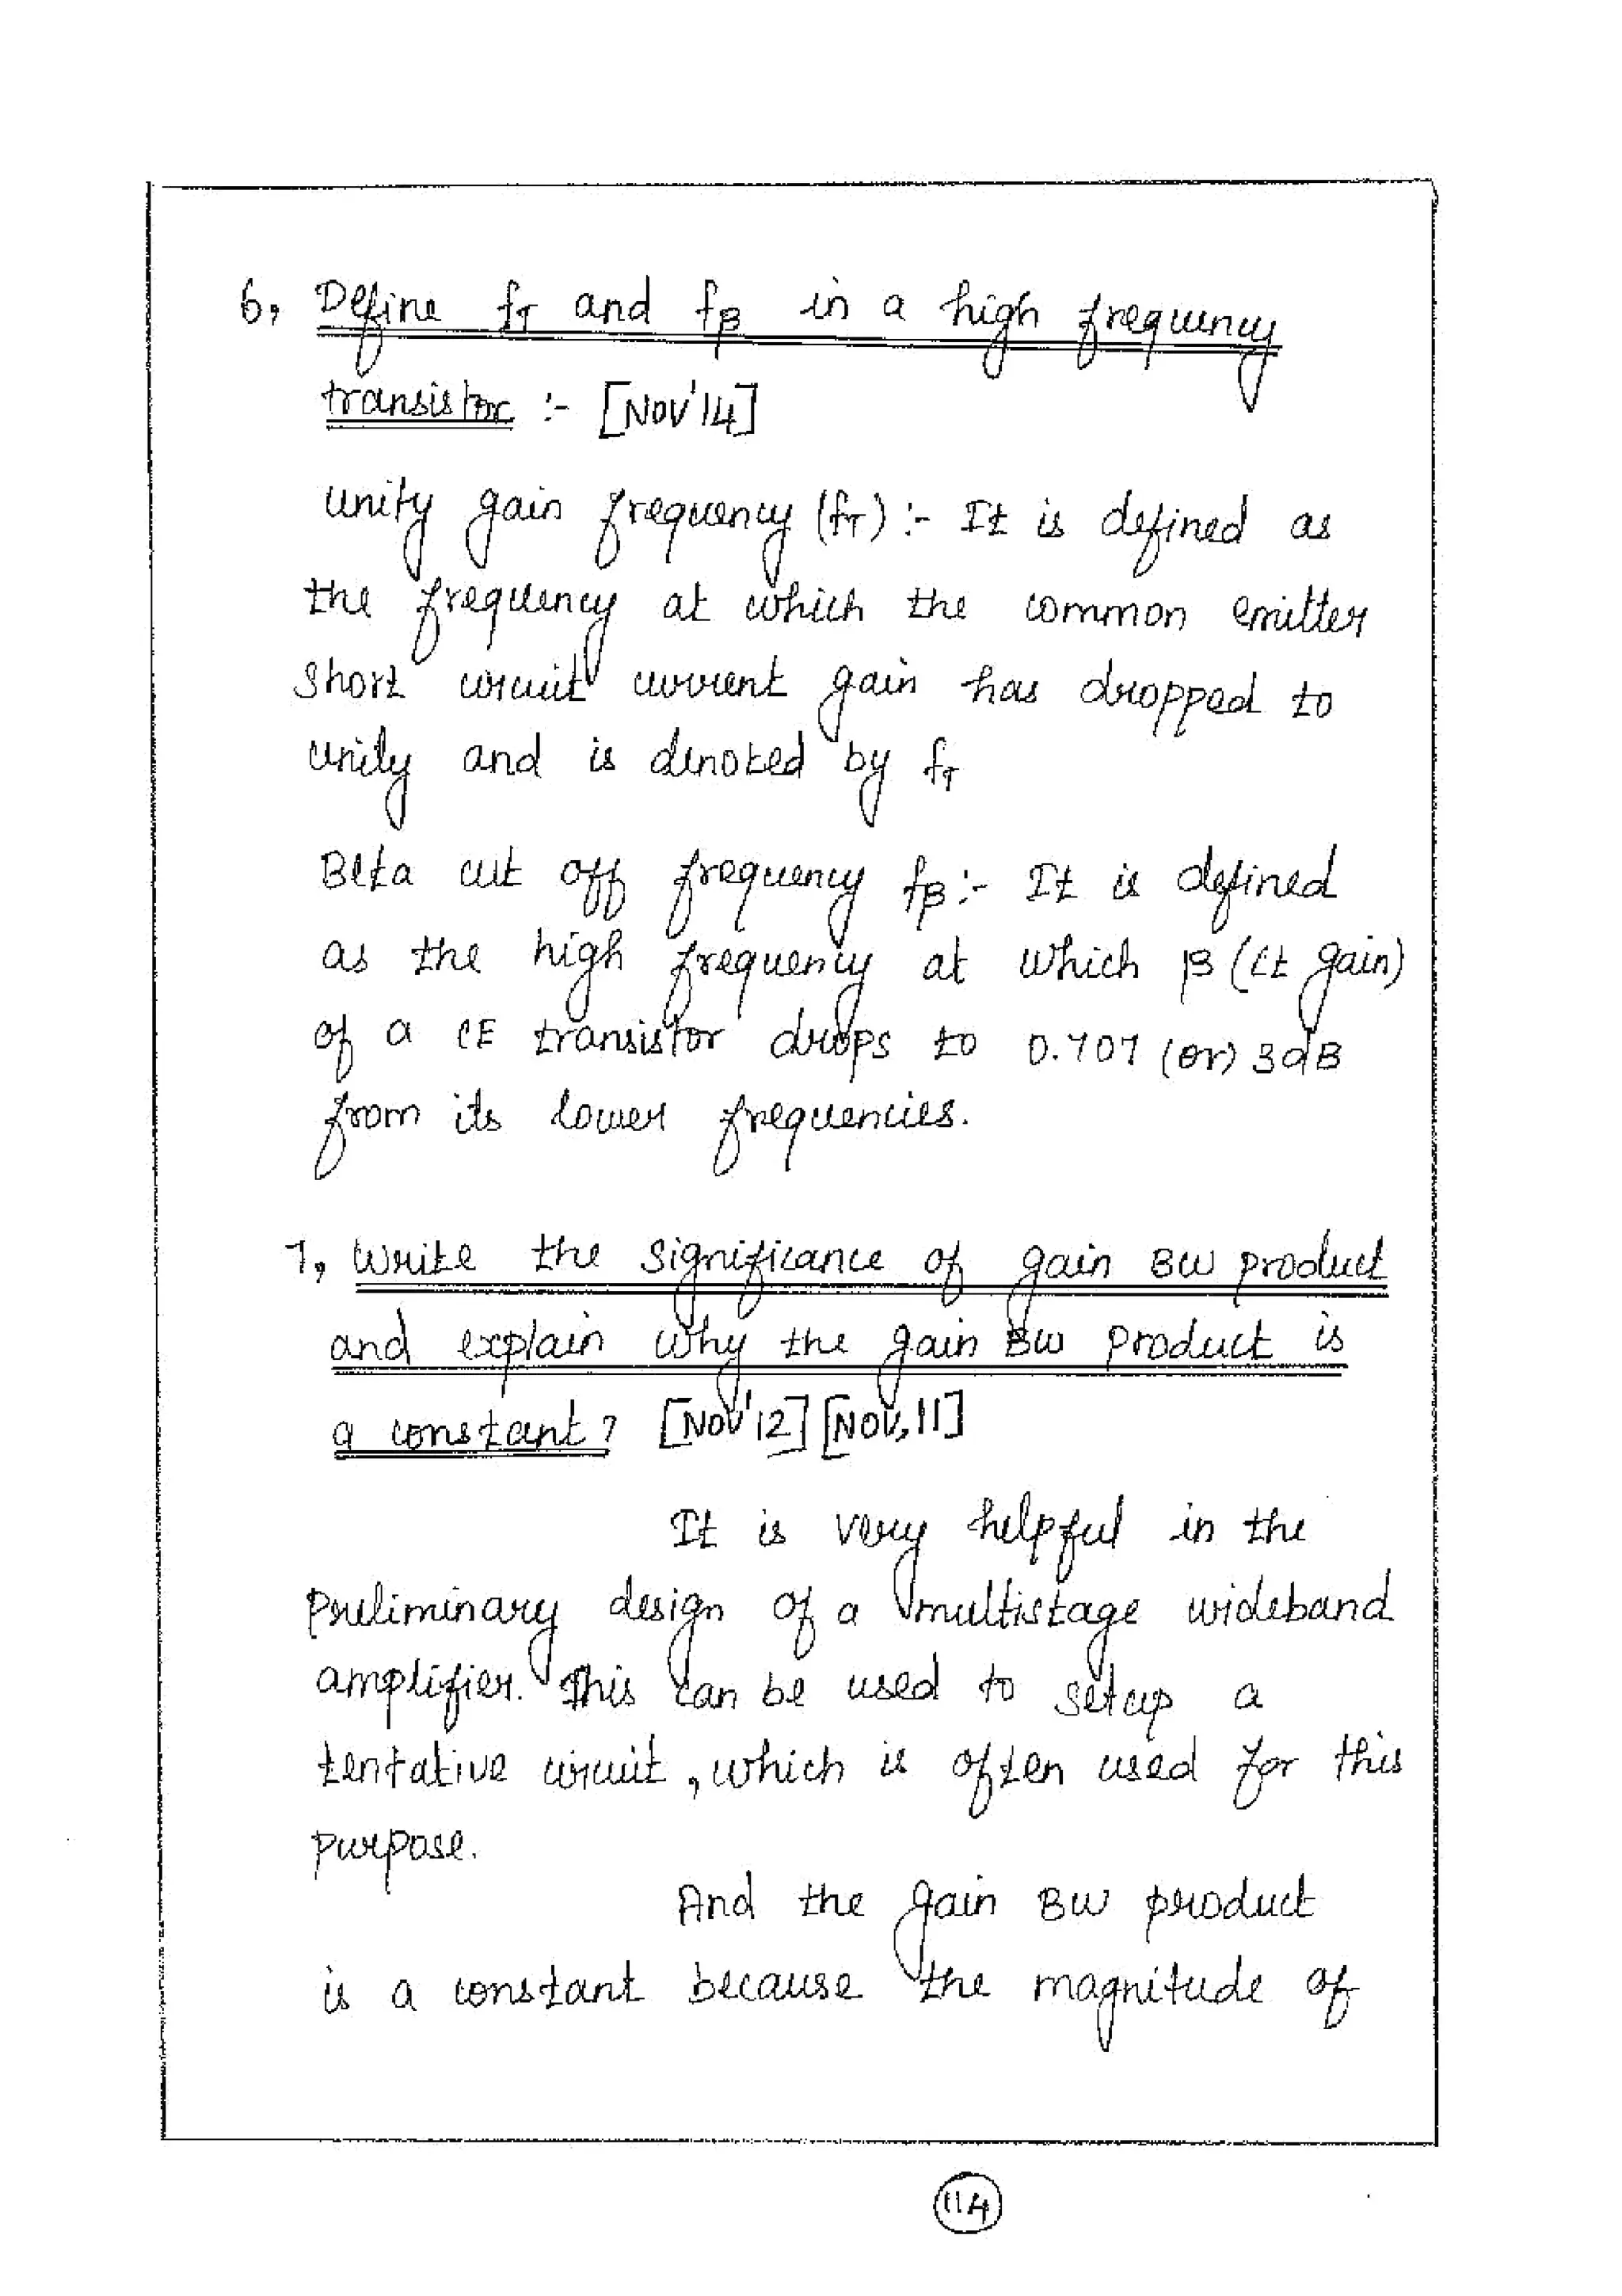 6, Define fT and fβ in a high frequency
transistor :- [Nov'14]
unity gain frequency (fT) :- It is defined as
the frequency at which the common emitter
short circuit current gain has dropped to
unity and is denoted by fT
Beta cut off frequency fβ :- It is defined
as the high frequency at which β (Ct gain)
of a CE transistor drops to 0.707 (or) 3dB
from its lower frequencies.
7, Write the significance of gain BW product
and explain why the gain BW product is
a constant? [Nov'12] [Nov,11]
It is very helpful in the
preliminary design of a multistage wideband
amplifier. This can be used to setup a
tentative circuit, which is often used for this
purpose.
And the gain BW product
is a constant because the magnitude of
114